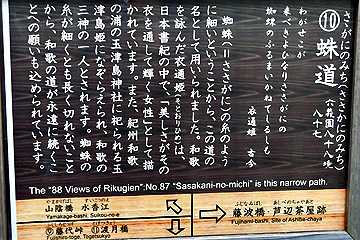 ささがにのみち(ささがにのみち)
⑩ 蛛道
(六義園八十八境 八十七)
わがせこが
来べきよひなりささがにの
蛛蛛のふるまいかねてしるしも
衣通姫
蜘蛛(りささがに)の糸のよう
に細いということから、この道の
名として用いられました。和歌
を詠んだ衣通姫(そとおりひめ)は、
日本書紀の中で、「美しさがその
衣を通して輝く女性」として描
かれています。また、紀州和歌
の浦の玉津島神社に祀られる玉
津島姫になぞらえられ、和歌の
三神の一人とされます。蜘蛛の
糸が細くとも長く切れないこと
から、和歌の道が永遠に続くこ
との願いも込められています。
The "88 Views of Rikugien".No.87 "Sasakani-no-michi" is this narrow path.
山陰橋 水香江
Yamakage-bashi, Suikou-no-e
⑨藤代峠 ⑪渡月橋
Fujishiro-toge, Togetsukyo
藤波橋・芦辺茶屋跡
Fujinami-bashi, Site of Ashibe-chaya